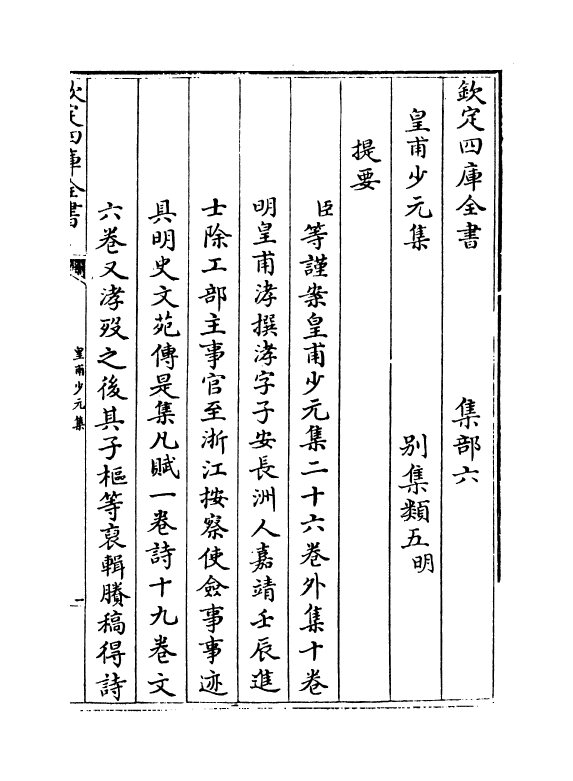 欽定四庫全書　集部六
皇甫少元集　别集類五明
提要
臣等謹案皇甫少元集二十六卷外集十卷
明皇甫涍撰涍字子安長洲人嘉靖壬辰進
士除工部主事官至浙江按察使僉事事迹
具明史文苑傳是集凡賦一卷詩十九卷文
六卷又涍歿之後其子樞等裒輯賸稿得詩
欽定四庫全書
皇甫少元集
一